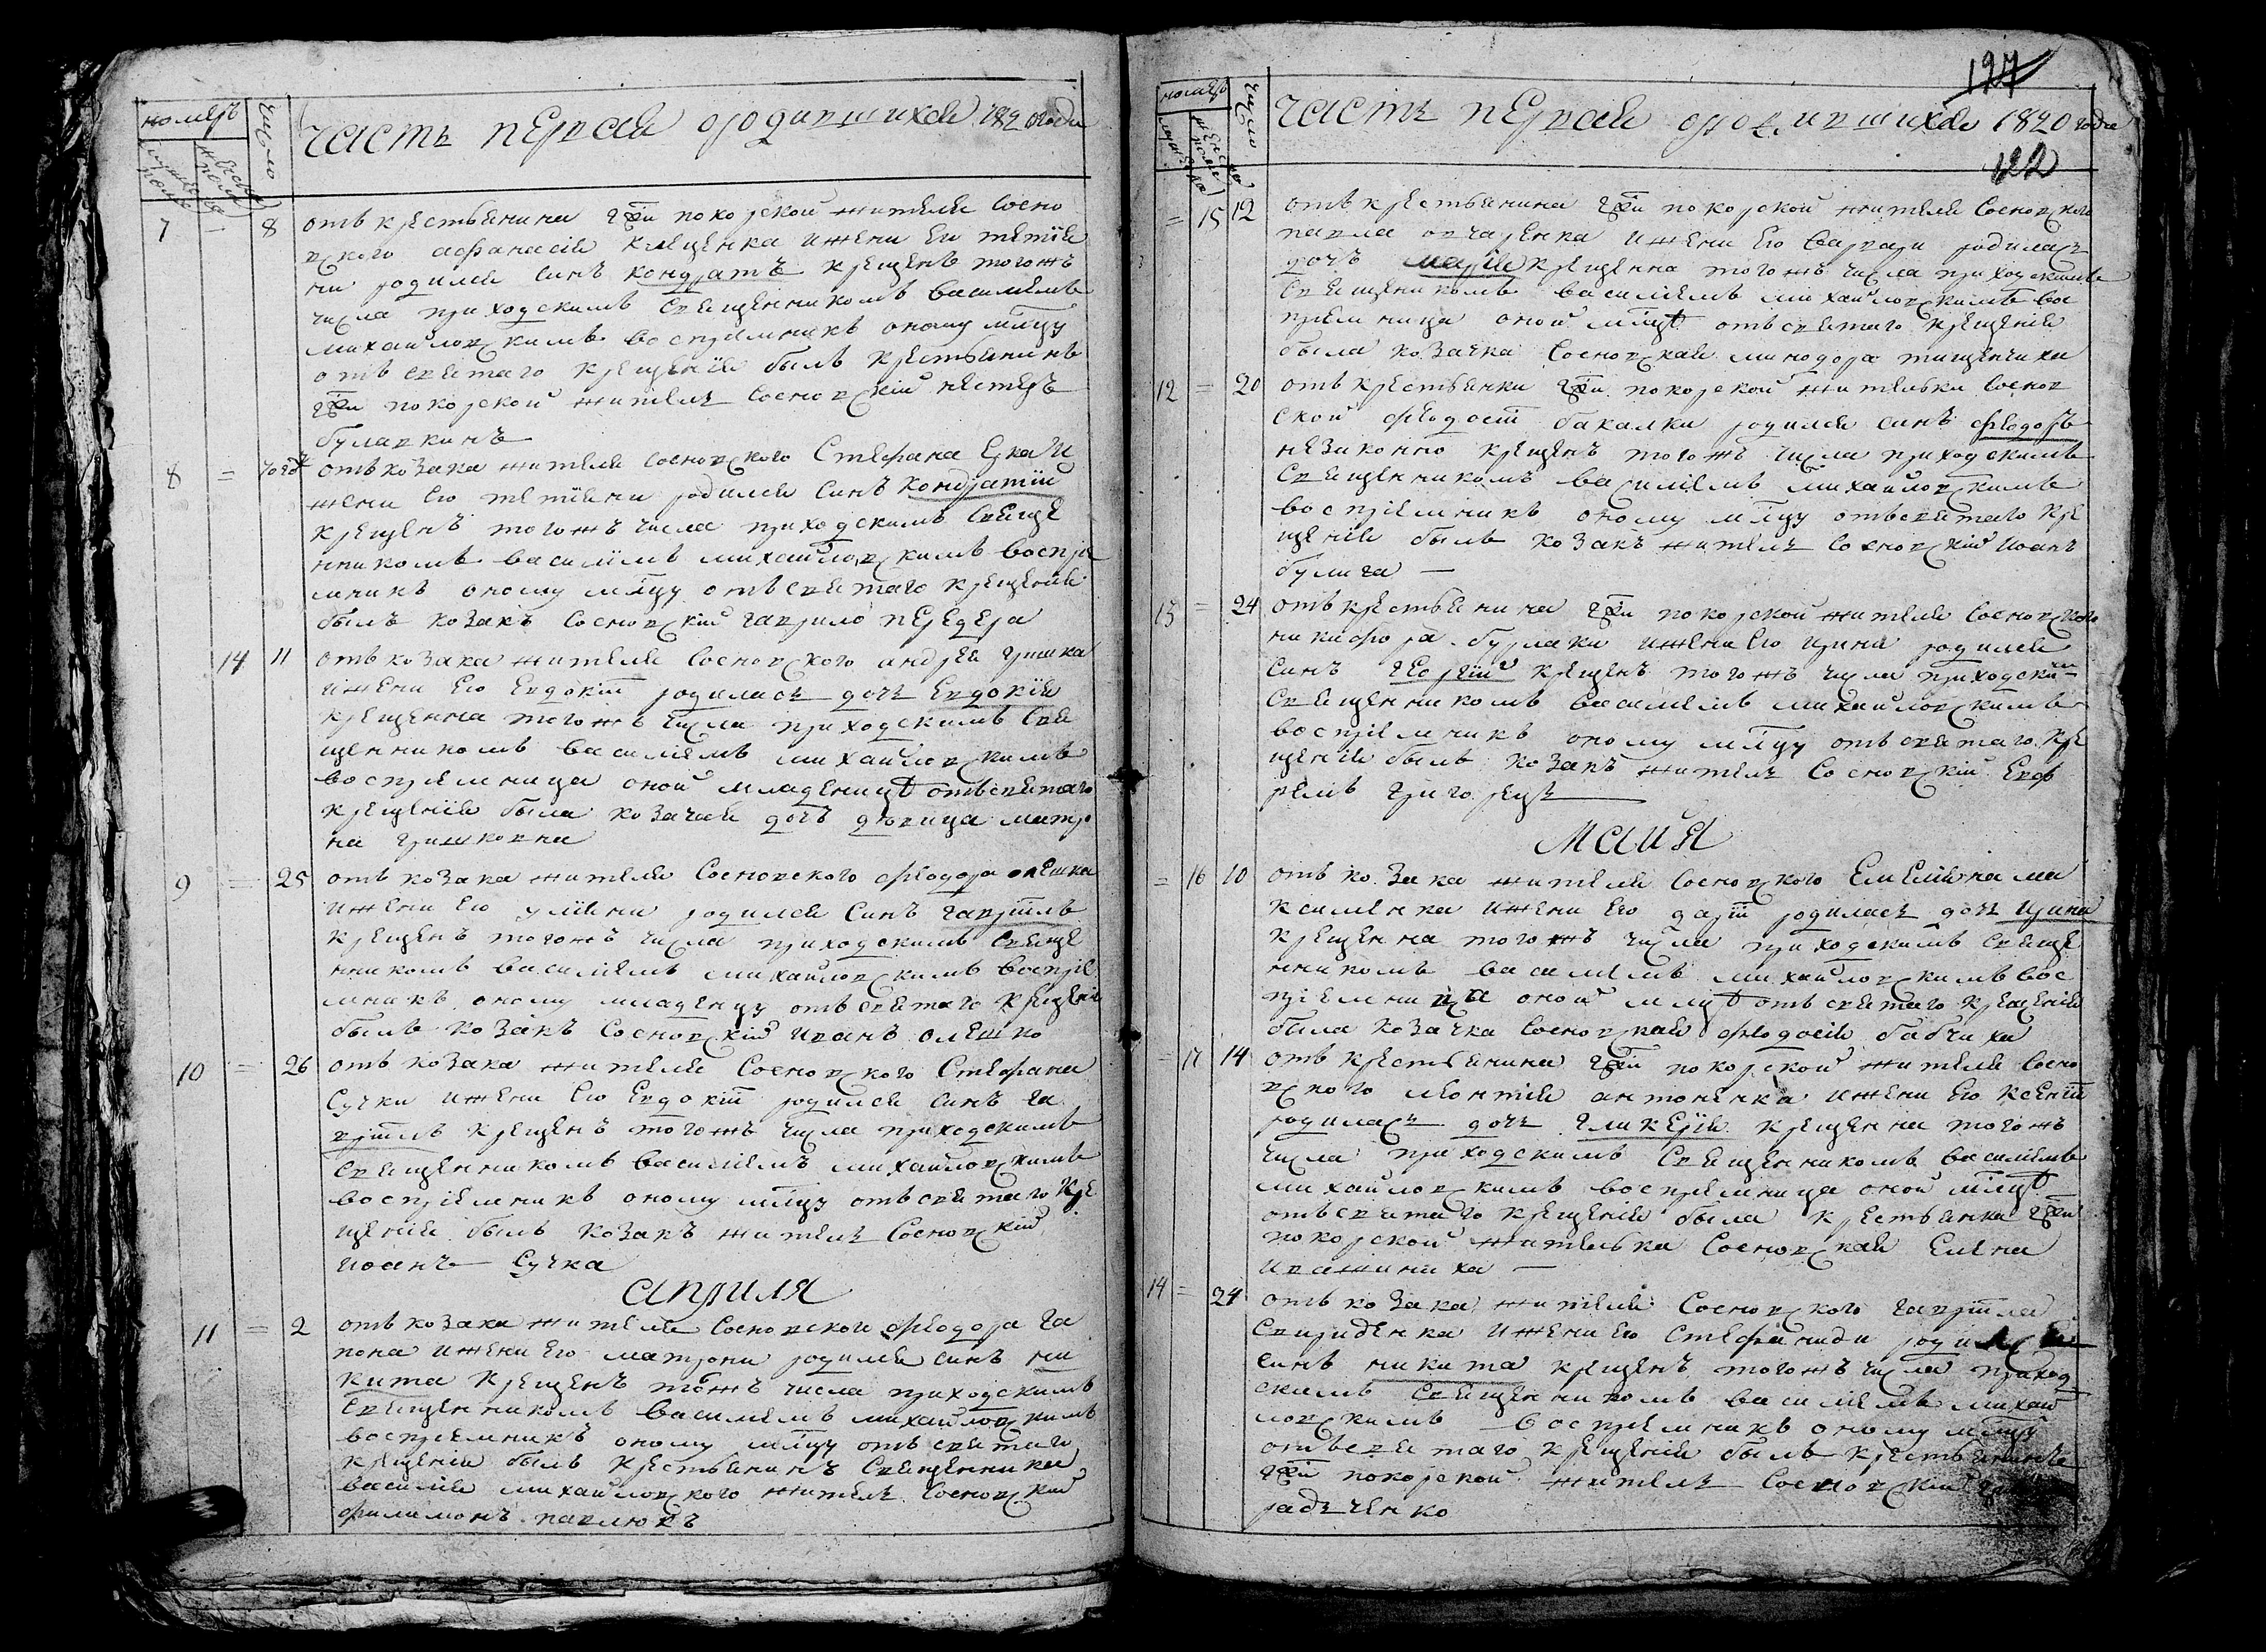 номеръ
число
мужеска полу
женска полу
Часть первая ородившихся 1820 года
7 – 8 отъ крестьянина гжи покорской жителя Сосно
вского афанасія клещенка ижени Еи тетіа
ни родился синъ кондратъ крещенъ тогожъ
числа приходскимъ Священникомъ василіемъ
михайловскимъ воспріемникъ оному млцу
отъ святаго крещенія былъ крестьянинъ
гжи покорской житель Сосновскій нестеръ
булавкинъ
8 = отъ козака жителя сосновского Стефана И
жени Его тетіяни родился Синъ Кондратій
крещенъ тогожъ числа приходскимъ Свяще
нникомъ василіемъ михайловскимъ воспріе
мникъ оному млцу отъ святаго крещенія
былъ козакъ Сосновскій гаврило передера
14 11 отъ козака жителя Сосновского андрея гришка
ижени Его Евдокіи родилась дочь Евдокія
крещенна тогожъ числа приходскимъ Свя
щенникомъ василіемъ михайловскимъ
воспріемница оной младеницѣ отъ святаго
крещенія была козачая дочъ дѣвица матро
на гришковна
9 = 25 отъ козака жителя Сосновского феодора олешка
ижени Его уліяни родился Синъ гавріилъ
крещенъ тогожъ числа приходскимъ Свяще
нникомъ василіемъ михайловскимъ воспріе
мникъ оному младенцу отъ святаго крещенія
былъ козакъ Сосновскій иванъ олешко
10 = 26 отъ козака жителя Сосновского Стефана
Сучки ижени Его Евдокіи родился синъ га
вріилъ крещенъ тогожъ числа приходскимъ
Священникомъ василіемъ михайловскимъ
воспріемникъ оному млцу отъ святаго кре
щенія былъ козакъ житель Сосновскій
иоанъ Сучка
априля
11 = 2 отъ козака жителя Сосновского феодора га
пона ижени Его матрони родился синъ ни
кита крещенъ тожъ числа приходскимъ
Священникомъ василіемъ михайловскимъ
воспріемникъ оному млцу отъ святаго
крещенія былъ крестьянинъ Священника
василія михайловского житель Сосновскій
филимонъ павлюкъ
127
номеръ
число
Часть первая ородившихся 1820 года
122
= 15 12 отъ крестьянина гжи покорской жителя Сосновского
павла овчаренка ижени Его варвари родилась
дочъ марія крещенна тогожъ числа приходскимъ
Священикомъ василіемъ михайловскимъ вос
пріемница оной млцѣ отъ святаго крещенія
была козачка Сосновская минодора тищенчиха
12 = 20 отъ крестьянки гжи покорской жительки Соснов
ской феодосіи бакалки родился синъ феодоръ
незаконно крещенъ тогожъ числа приходскимъ
Священникомъ василіемъ михайловскимъ
воспріемникъ оному млцу отъ святаго кре
щенія былъ козакъ житель Сосновскій иоанъ
булига
13 = 24 отъ крестьянина гжи покорской жителя Сосновского
никифора бурлаки ижени Его ирини родился
синъ георгій крещенъ тогожъ числа приходским
Священникомъ василіемъ михайловскимъ
воспріемникъ оному млцу отъ святаго кре
щенія былъ козакъ житель Сосновскій Евф
ремъ
Маия
= 16 10 отъ козака жителя Сосновского Емеліяна ма
ксименка ижени Его даріи родилась дочъ ирина
крещенна тогожъ числа приходскимъ Свяще
нникомъ василіемъ михайловскимъ вос
пріемница оной млцѣ отъ святаго крещенія
была козачка Сосновская феодосія бабчиха
= 17 14 отъ крестьянина гжи покорской жителя Сосно
вского леонтія антоненка ижени Его ксеніи
родилась дочъ гликерія крещенна тогожъ
числа приходскимъ Священникомъ василіемъ
михайловскимъ воспріемница оной млцѣ
отъ святаго крещенія была крестьянка гжи
покорской жителька Сосновская Елена
иважиниха
14 = 24 отъ козака жителя Сосновского гавріила
Свириденка ижени Его Стефаниди родился
синъ никита крещенъ тогожъ числа приход
скимъ Священникомъ василіемъ михай
ловскимъ воспріемникъ оному млцу
отъ святаго крещенія былъ крестьянинъ
гжи покорской житель Сосновскій
радченко